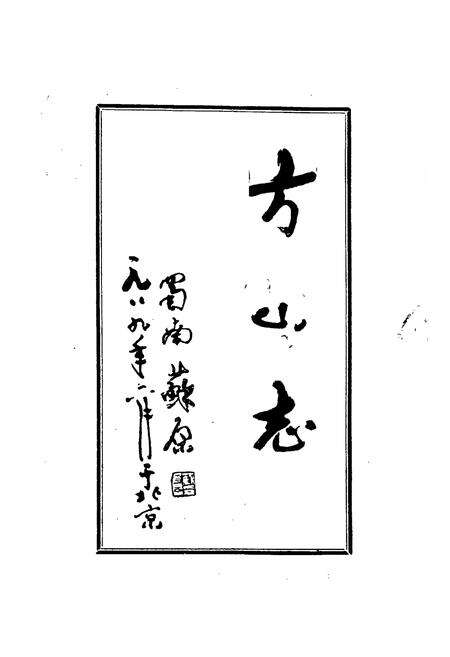 方山志
蜀南蘇原
一九八九年六月于北京